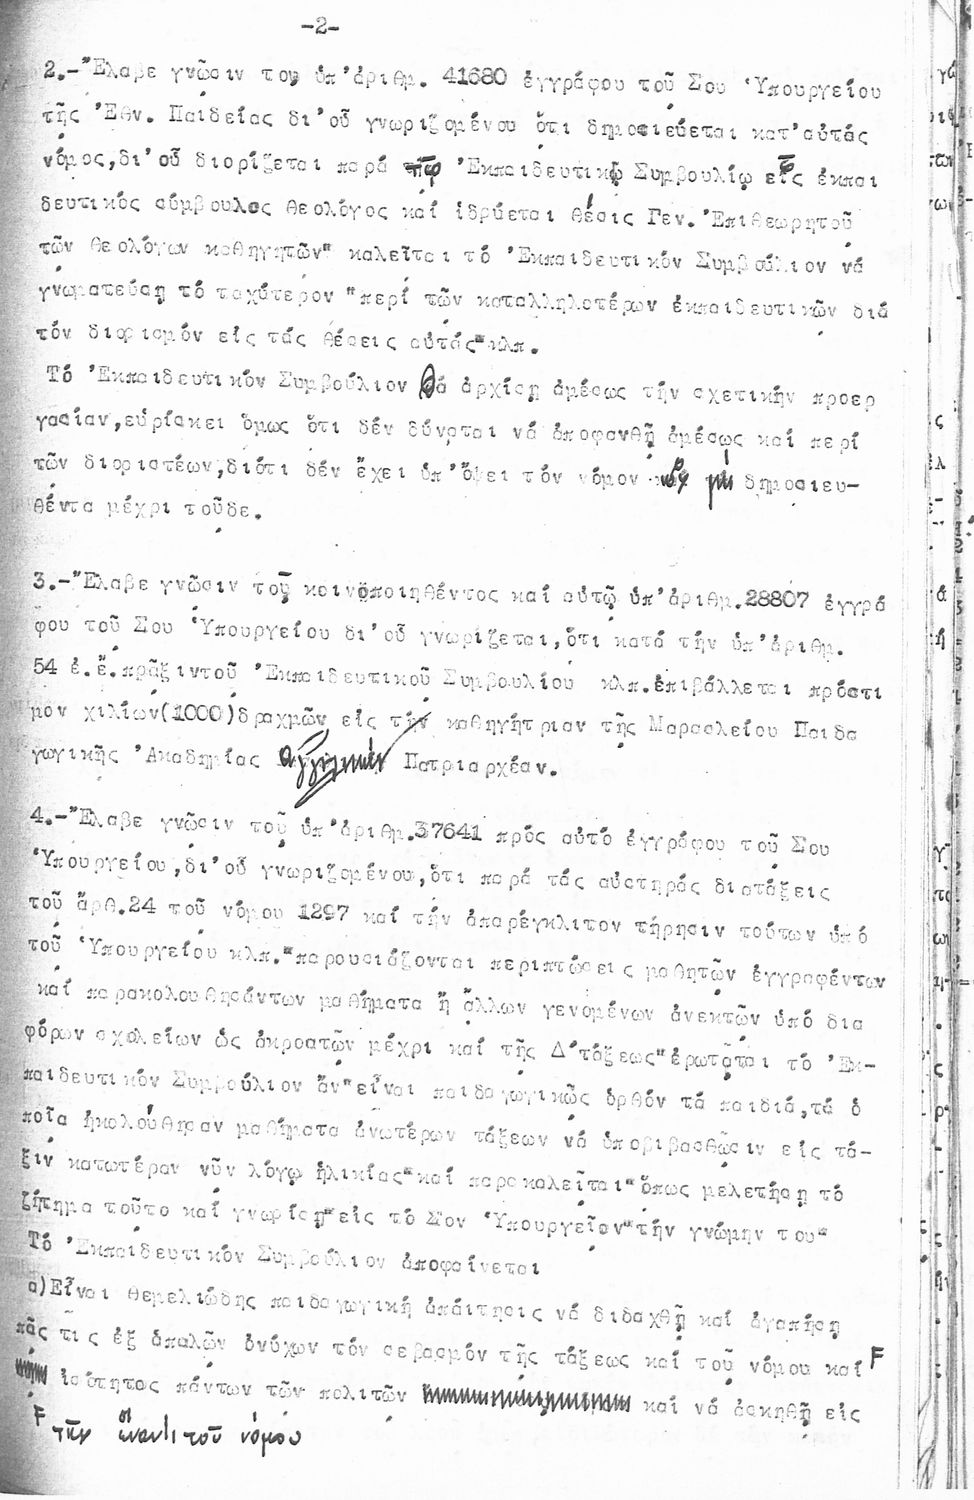 -2-
2.-Ἔλαβε γνῶσιν τοῦ ὑπ' ἀριθμ. 41680 ἐγγράφου τοῦ Σου Ὑπουργείου
τῆς Ἐθν. Παιδείας δι' οὗ γνωριζομένου ὅτι δημοσιεύεται κατ' αὐτάς
νόμος, δι' οὗ διορίζεται παρά τῷ Ἐκπαιδευτικῷ Συμβουλίῳ εἷς ἐκπαι
δευτικός σύμβουλος θεολόγος καί ἱδρύεται θέσις Γεν. Ἐπιθεωρητοῦ
τῶν θεολόγων καθηγητῶν" καλεῖται τό Ἐκπαιδευτικόν Συμβούλιον νά
γνωματεύσῃ τό ταχύτερον "περί τῶν καταλληλοτέρων ἐκπαιδευτικῶν διά
τόν διορισμόν εἰς τάς θέσεις αὐτάς" κλπ.
Τό Ἐκπαιδευτικόν Συμβούλιον θά ἀρχίσῃ ἀμέσως τήν σχετικήν προερ
γασίαν, εὑρίσκει ὅμως ὅτι δέν δύναται νά ἀποφανθῇ ἀμέσως καί περί
τῶν διοριστέων, διότι δέν ἔχει ὑπ' ὄψει τόν νόμον μή δημοσιευ-
θέντα μέχρι τοῦδε.
3.-Ἔλαβε γνῶσιν τοῦ κοινοποιηθέντος καί αὐτῷ ὑπ' ἀριθμ. 28807 ἐγγρά
φου τοῦ Σου Ὑπουργείου δι' οὗ γνωρίζεται, ὅτι κατά τήν ὑπ' ἀριθμ.
54 ἐ.ἔ. πρᾶξιν τοῦ Ἐκπαιδευτικοῦ Συμβουλίου κλπ. ἐπιβάλλεται πρόστι
μον χιλίων (1000) δραχμῶν εἰς τήν καθηγήτριαν τῆς Μαρασλείου Παιδα
γωγικῆς Ἀκαδημίας Ἀγγελικήν Πατριαρχέαν.
4.-Ἔλαβε γνῶσιν τοῦ ὑπ' ἀριθμ. 37641 πρός αὐτό ἐγγράφου τοῦ Σου
Ὑπουργείου, δι' οὗ γνωριζομένου, ὅτι παρά τάς αὐστηράς διατάξεις
τοῦ ἄρθ. 24 τοῦ νόμου 1297 καί τήν ἀπαρέγκλιτον τήρησιν τούτων ὑπό
τοῦ Ὑπουργείου κλπ. "παρουσιάζονται περιπτώσεις μαθητῶν ἐγγραφέντων
καί παρακολουθησάντων μαθήματα ἤ ἄλλων γενομένων ἀνεκτῶν ὑπό δια
φόρων σχολείων ὡς ἀκροατῶν μέχρι καί τῆς Δ΄ τάξεως" ἐρωτᾶται τό Ἐκ-
παιδευτικόν Συμβούλιον ἄν "εἶναι παιδαγωγικῶς ὀρθόν τά παιδιά, τά ὁ
ποῖα ἠκολούθησαν μαθήματα ἀνωτέρων τάξεων νά ὑποβιβασθῶσιν εἰς τά-
ξιν κατωτέραν νῦν λόγῳ ἡλικίας" καί παρακαλεῖται "ὅπως μελετήσῃ τό
ζήτημα τοῦτο καί γνωρίσῃ" εἰς τό Σον Ὑπουργεῖον "τήν γνώμην του"
Τό Ἐκπαιδευτικόν Συμβούλιον ἀποφαίνεται
α) Εἶναι θεμελιώδης παιδαγωγική ἀπαίτησις νά διδαχθῇ καί ἀγαπήσῃ
πᾶς τις ἐξ ἁπαλῶν ὀνύχων τόν σεβασμόν τῆς τάξεως καί τοῦ νόμου καί F
ἰσότητος πάντων τῶν πολιτῶν καί νά ἀσκηθῇ εἰς
F τῆς ἔναντι τοῦ νόμου